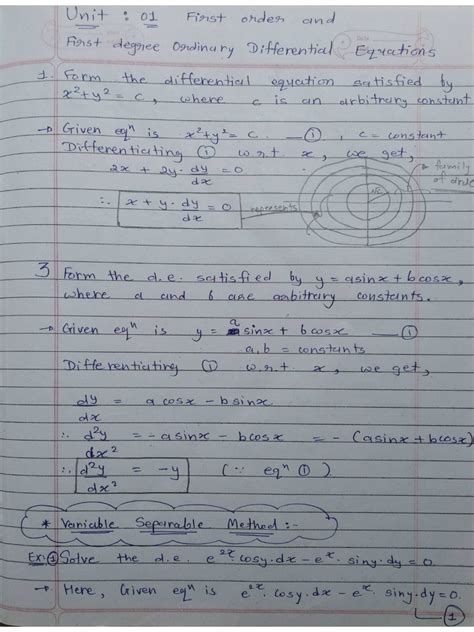 Unit : 01 First order and
First degree Ordinary Differential Equations
1. Form the differential equation satisfied by
x²+y²=c, where c is an arbitrary constant
→ Given eqⁿ is x²+y²=c. —①, c = constant
Differentiating ① w.r.t x, we get,
2x + 2y·dy/dx = 0
∴ x + y·dy/dx = 0 represents family of circle
3 Form the d.e. satisfied by y = asinx + bcosx,
where a and b are arbitrary constants.
→ Given eqⁿ is y = asinx + bcosx —①
a,b = constants
Differentiating ① w.r.t. x, we get,
dy/dx = a cosx - bsinx
∴ d²y/dx² = -asinx - bcosx = -(asinx + bcosx)
∴ d²y/dx² = -y (∵ eqⁿ ①)
* Variable Separable Method :-
Ex:① Solve the d.e. e²ˣ·cosy·dx - eˣ·siny·dy = 0.
→ Here, Given eqⁿ is e²ˣ·cosy·dx - eˣ·siny·dy = 0.
①